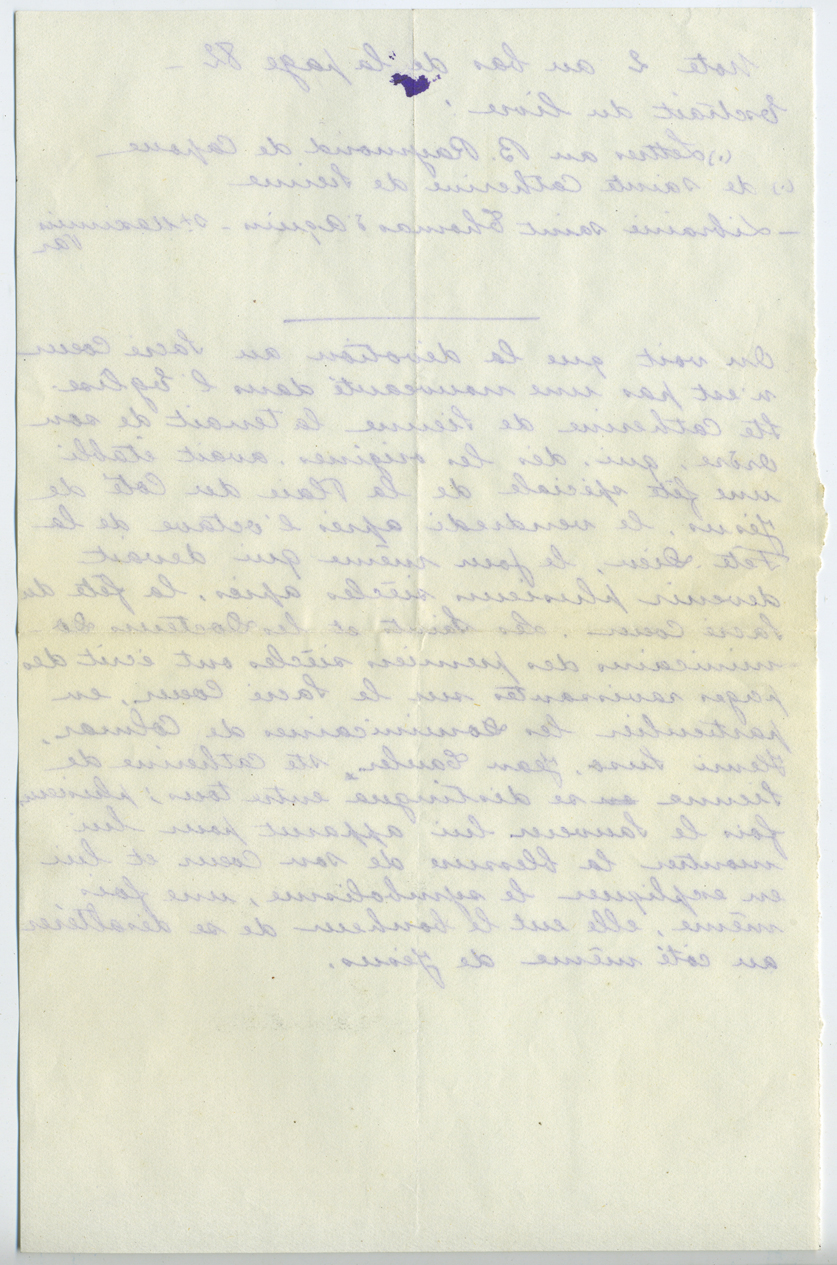 Note 2 au bas de la page 82 -
Extrait du livre :
"Lettres au B. Raymond de Capoue
" de sainte Catherine de Sienne
- Librairie saint Thomas d'Aquin - St Maximin
Var
On voit que la dévotion au Sacré Coeur
n'est pas une nouveauté dans l'Eglise.
Ste Catherine de Sienne la tenait de son
ordre, qui, dès les origines, avait établi
une fête spéciale de la Plaie du Coté de
Jésus, le vendredi après l'octave de la
Fête Dieu, le jour même qui devait
devenir plusieurs siècles après, la fête du
Sacré Coeur. Les Saints et les Docteurs Do
minicains des premiers siècles ont écrit des
pages ravissantes sur le Sacré Coeur, en
particulier les Dominicaines de Colmar,
Henri Suso, Jean Tauler, Ste Catherine de
Sienne se distingua entre tous ; plusieurs
fois le Sauveur lui apparut pour lui
montrer la blessure de son Coeur et lui
en expliquer le symbolisme, une fois
même, elle eut le bonheur de se désaltérer
au coté même de Jésus.